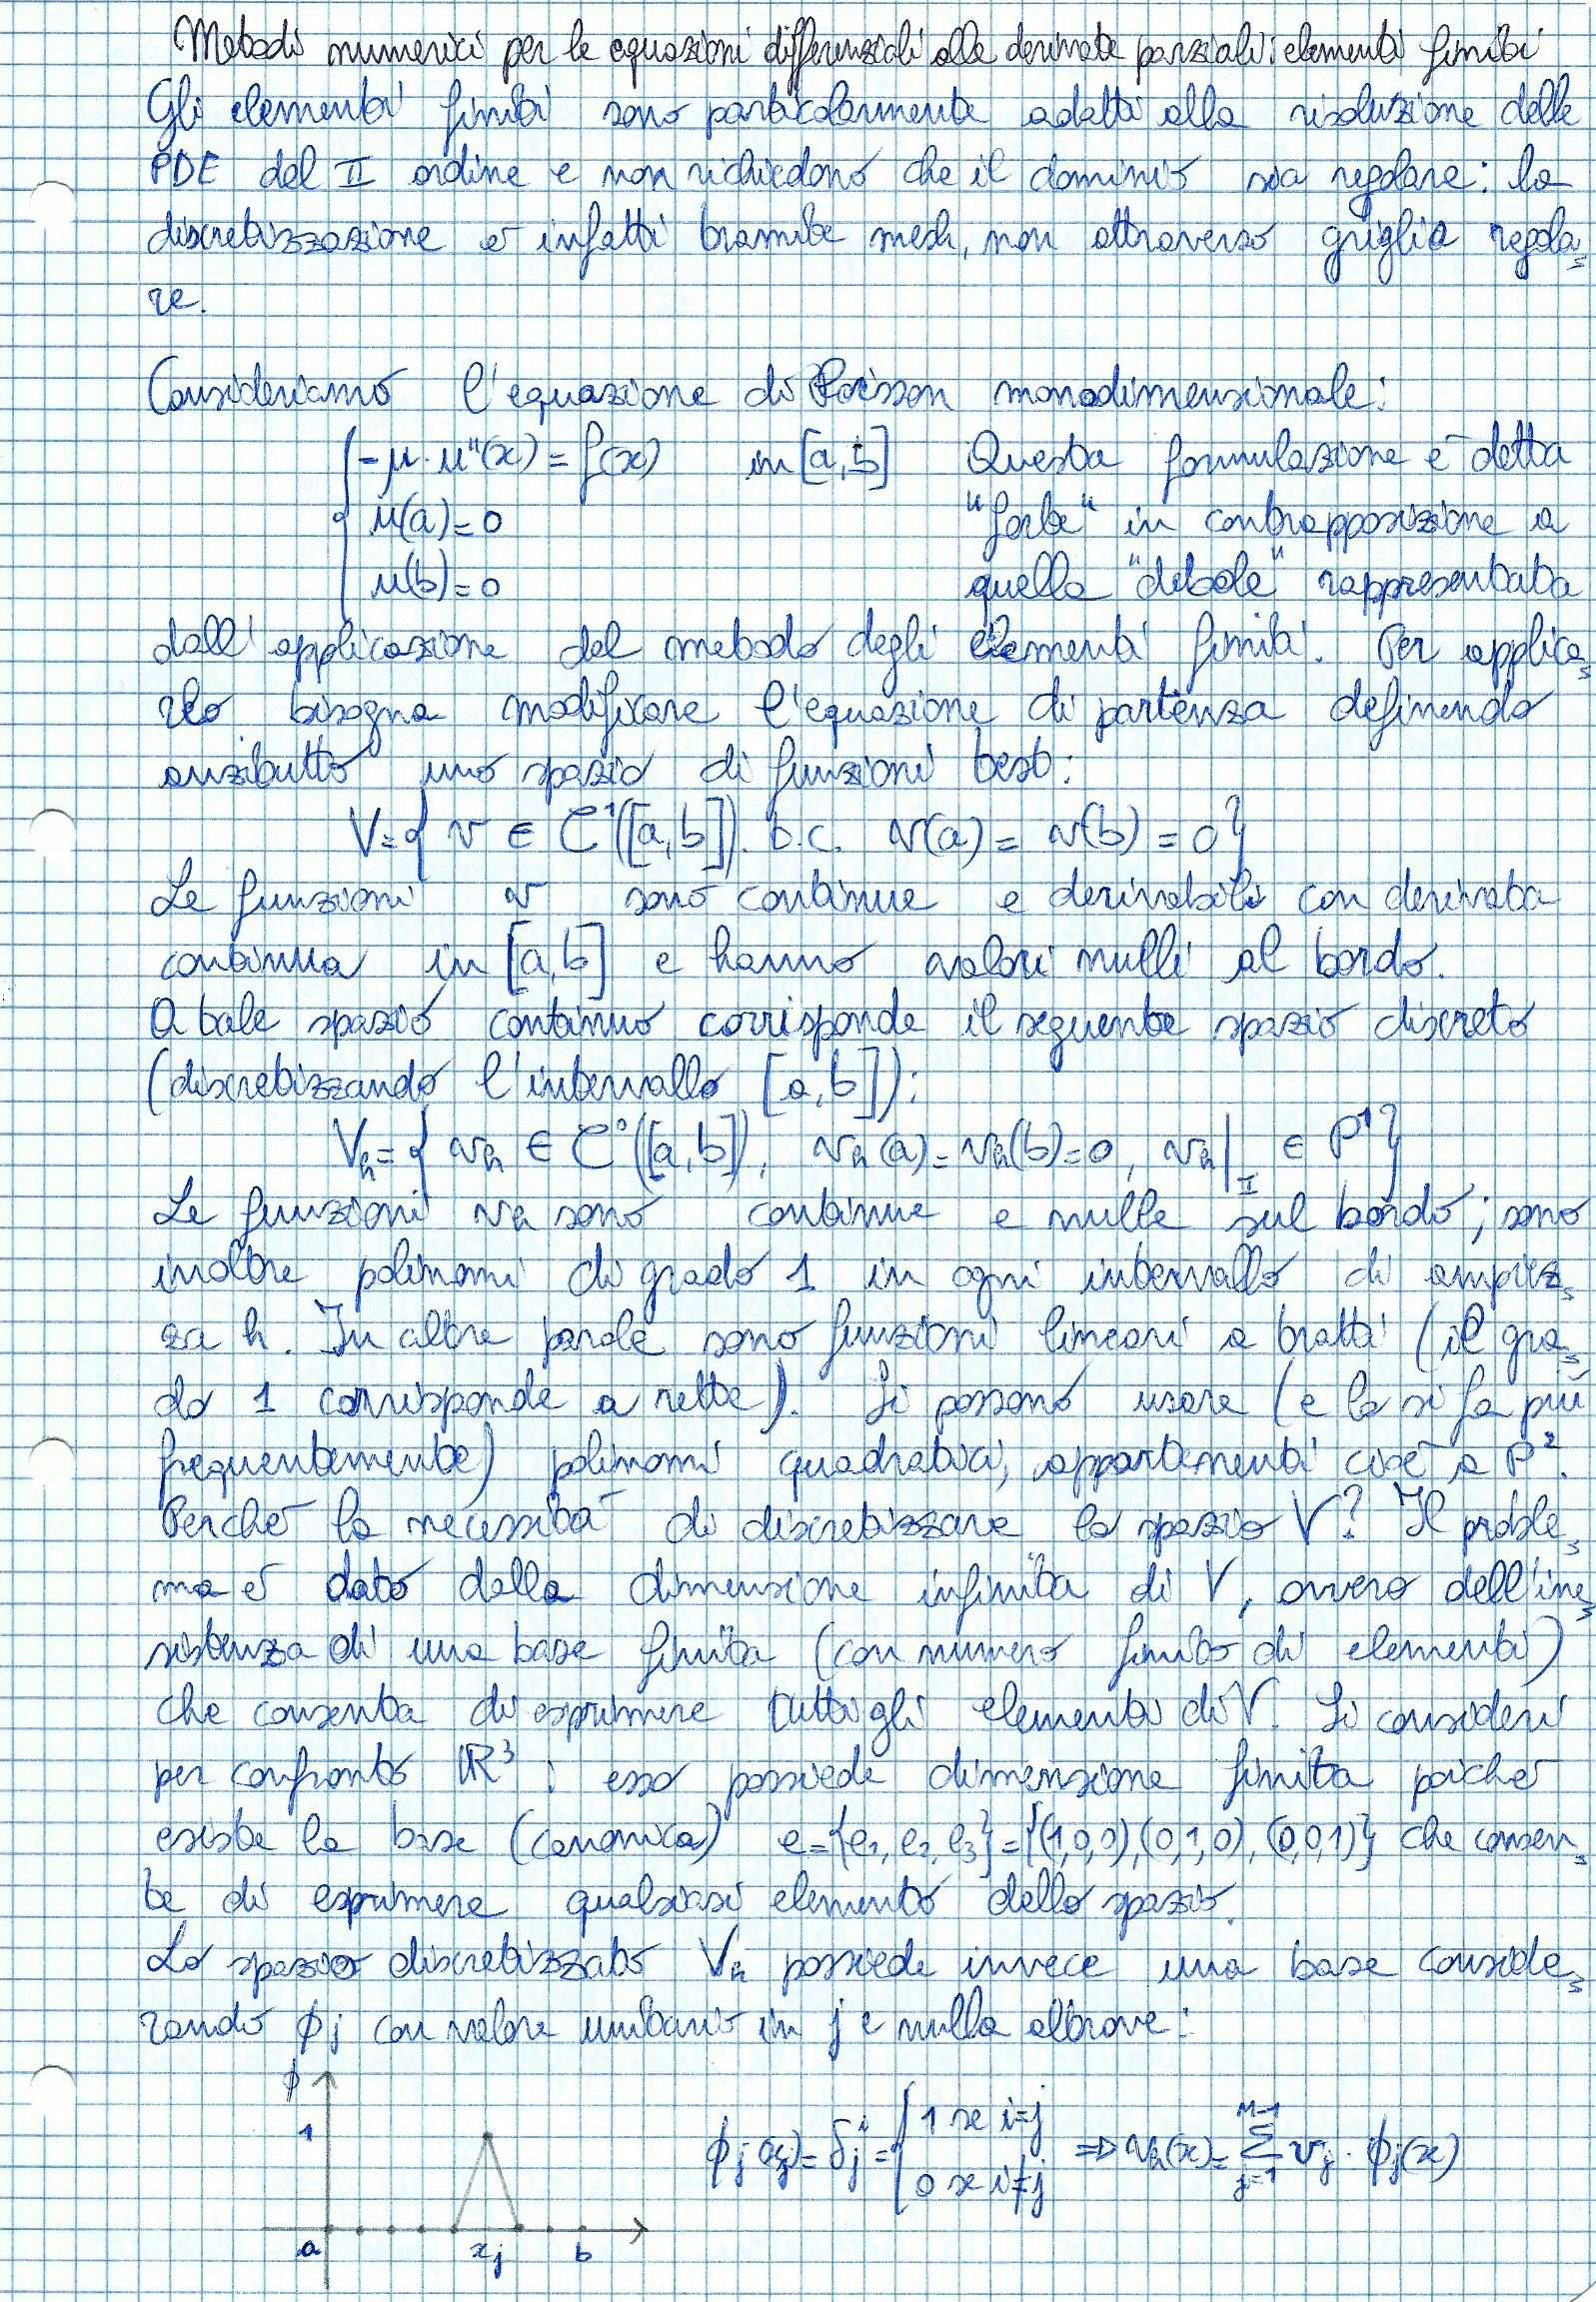 Metodi numerici per le equazioni differenziali alle derivate parziali: elementi finiti
Gli elementi finiti sono particolarmente adatti alla risoluzione delle
PDE del II ordine e non richiedono che il dominio sia regolare: la
discretizzazione è infatti tramite mesh, non attraverso griglia regola
re.
Consideriamo l'equazione di Poisson monodimensionale:
-μ·u''(x)=f(x) in [a,b] Questa formulazione è detta
u(a)=0 "forte" in contrapposizione a
u(b)=0 quella "debole" rappresentata
dall'applicazione del metodo degli elementi finiti. Per applica
rlo bisogna modificare l'equazione di partenza definendo
anzitutto uno spazio di funzioni test:
V={ v ∈ C¹([a,b]). t.c. v(a)= v(b)=0}
Le funzioni v sono continue e derivabili con derivata
continua in [a,b] e hanno valori nulli al bordo.
A tale spazio continuo corrisponde il seguente spazio discreto
(discretizzando l'intervallo [a,b]):
Vh={ vh ∈ C⁰([a,b]), vh(a)=vh(b)=0, vh|I ∈ P¹}
Le funzioni vh sono continue e nulle sul bordo; sono
inoltre polinomi di grado 1 in ogni intervallo di ampiez
za h. In altre parole sono funzioni lineari a tratti (il gra
do 1 corrisponde a rette). Si possono usare (e lo si fa più
frequentemente) polinomi quadratici, appartenenti cioè a P².
Perché la necessità di discretizzare lo spazio V? Il proble
ma è dato dalla dimensione infinita di V, ovvero dell'ine
sistenza di una base finita (con numero finito di elementi)
che consenta di esprimere tutti gli elementi di V. Si consideri
per confronto ℝ³: esso possiede dimensione finita poiché
esiste la base (canonica) e={e1, e2, e3}={(1,0,0),(0,1,0),(0,0,1)} che consen
te di esprimere qualsiasi elemento dello spazio.
Lo spazio discretizzato Vh possiede invece una base conside
rando ϕj con valore unitario in j e nulla altrove:
ϕ
1
ϕj(xj)= δj^i = { 1 se i=j 0 se i≠j ⇒ vh(x)= Σ_{j=1}^{M-1} vj · ϕj(x)
a xj b